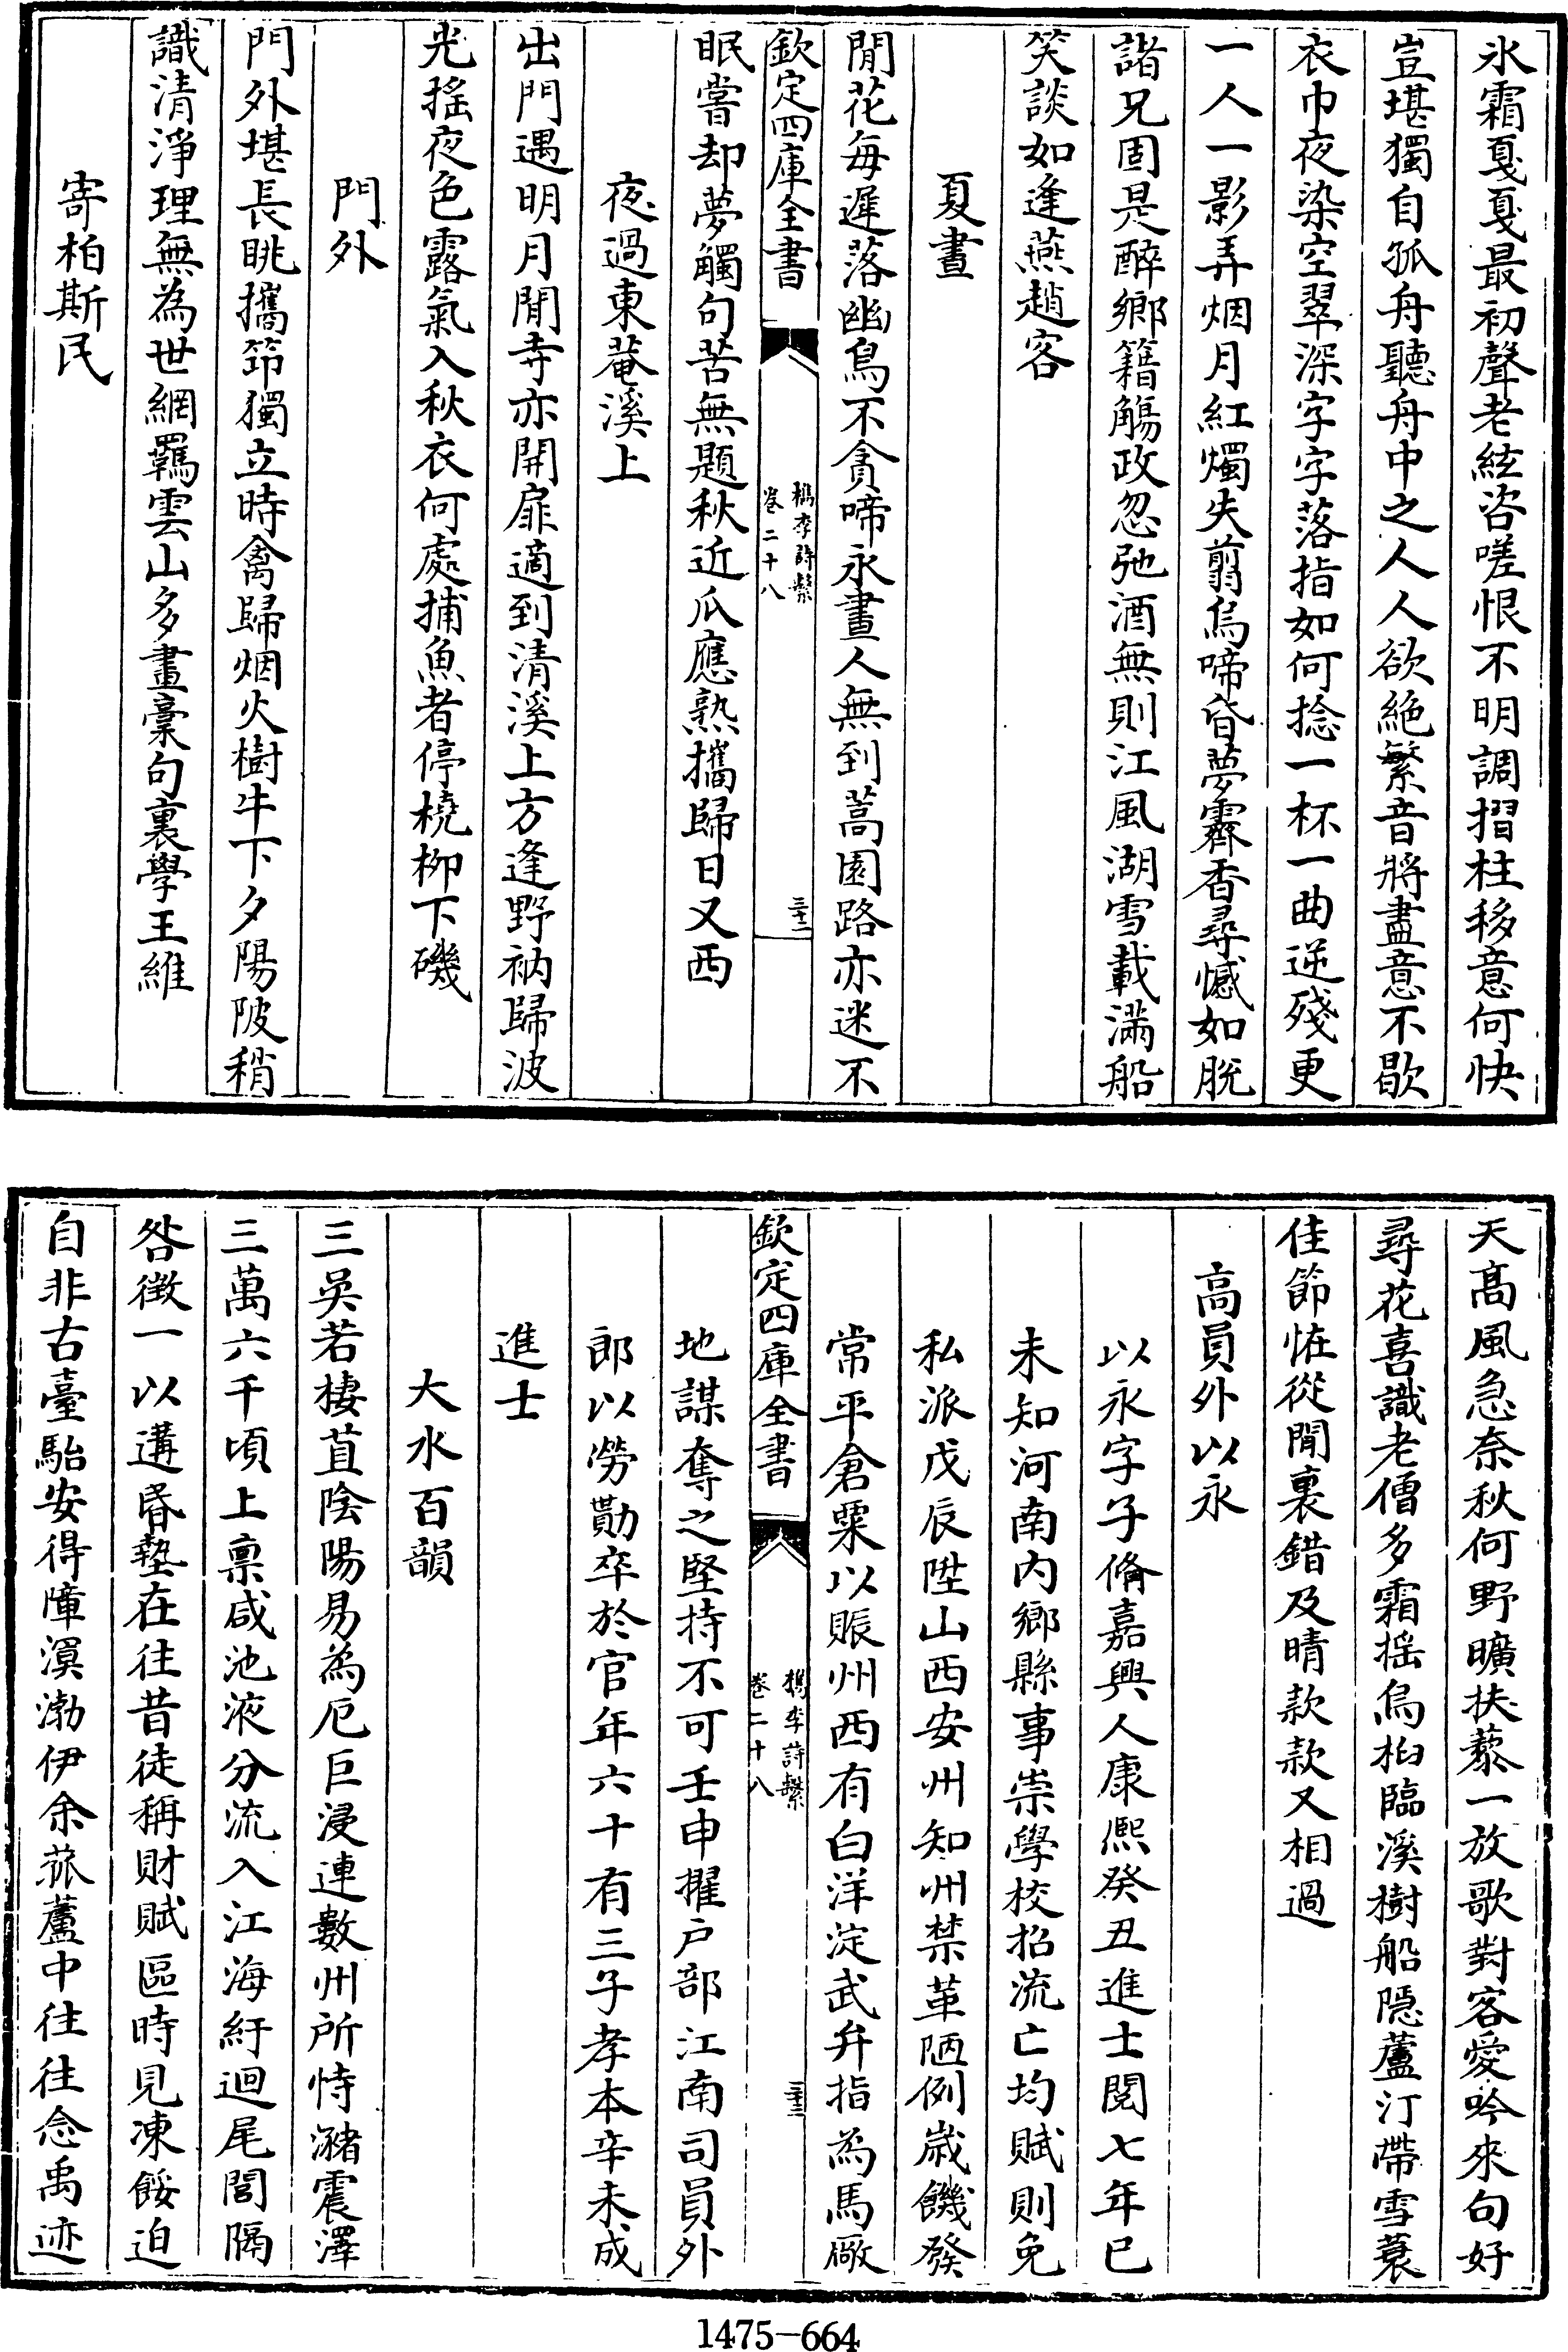 氷霜戛戛最初聲老絃咨嗟恨不明調摺柱移意何快
豈堪獨自孤舟聽舟中之人人欲絶繁音將盡意不歇
衣巾夜染空翠深字字落指如何捻一杯一曲逆殘更
一人一影弄烟月紅燭失翦烏啼昏夢霽香尋憾如脫
諸兄固是醉鄉籍觴政忽弛酒無則江風湖雪載滿船
笑談如逢燕趙客
夏晝
閒花每遲落幽鳥不貪啼永晝人無到蒿園路亦迷不
欽定四庫全書
檇李詩繫
卷二十八
三十二
眠嘗却夢觸句苦無題秋近瓜應熟攜歸日又西
夜過東菴溪上
出門遇明月閒寺亦開扉適到清溪上方逢野衲歸波
光搖夜色露氣入秋衣何處捕魚者停橈柳下磯
門外
門外堪長眺攜笻獨立時禽歸烟火樹牛下夕陽陂稍
識清淨理無為世網羈雲山多畫稾句裏學王維
寄柏斯民
天髙風急奈秋何野曠扶藜一放歌對客愛吟來句好
尋花喜識老僧多霜搖烏桕臨溪樹船隱蘆汀帶雪蓑
佳節恠從閒裏錯及晴款款又相過
高員外以永
以永字子脩嘉興人康熈癸丑進士閱七年已
未知河南内鄉縣事崇學校招流亡均賦則免
私派戊辰陞山西安州知州禁革陋例歳饑發
常平倉粟以賑州西有白洋淀武弁指為馬廠
欽定四庫全書
檇李詩繫
卷二十八
三十三
地謀奪之堅持不可壬申擢户部江南司員外
郎以勞勩卒於官年六十有三子孝本辛未成
進士
大水百韻
三吳若棲苴陰陽易為厄巨浸連數州所恃瀦震澤
三萬六千頃上禀咸池液分流入江海紆迴尾閭隔
咎徵一以遘昬墊在往昔徒稱財賦區時見凍餒迫
自非古臺駘安得障溟渤伊余菰蘆中往往念禹迹
1475-664